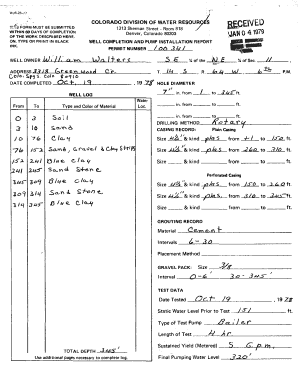 COLORADO DIVISION OF WATER RESOURCES
1313 Sherman Street - Room 818
Denver, Colorado 80203
RECEIVED
JAN 04 1979
THIS FORM MUST BE SUBMITTED
WITHIN 60 DAYS OF COMPLETION
OF THE WORK DESCRIBED HERE-
ON. TYPE OR PRINT IN BLACK
INK.
WELL COMPLETION AND PUMP INSTALLATION REPORT
PERMIT NUMBER 100241
WELL OWNER William Walters
SE ¼ of the NE ¼ of Sec 11
ADDRESS 3313 Greenwood Cr.
T 14 S, R 64 W, 6th P.M.
DATE COMPLETED Oct 19, 1978
HOLE DIAMETER
WELL LOG
7" in. from 1 to 345 ft.
From To Type and Color of Material Water Loc.
in. from to ft.
in. from to ft.
0 3 Soil
DRILLING METHOD Rotary
3 10 Sand
CASING RECORD: Plain Casing
10 76 Clay
Size 4½" & kind plas. from +1 to 150 ft.
76 152 Sand, Gravel & Clay Strips
Size 4½" & kind plas. from 260 to 310 ft.
152 241 Blue Clay
Size & kind from to ft.
241 305 Sand Stone
Perforated Casing
305 309 Blue Clay
Size 4½" & kind plas. from 150 to 260 ft.
309 314 Sand Stone
Size 4½" & kind plas. from 310 to 345 ft.
314 345 Blue Clay
Size & kind from to ft.
GROUTING RECORD
Material Cement
Intervals 6-30
Placement Method
GRAVEL PACK: Size 3/8
Interval 0-6 30-345'
TEST DATA
Date Tested Oct 19, 1978
Static Water Level Prior to Test 151 ft.
Type of Test Pump Bailer
Length of Test 4 hr
TOTAL DEPTH 345'
Sustained Yield (Metered) 5 G.p.m.
Use additional pages necessary to complete log.
Final Pumping Water Level 320'